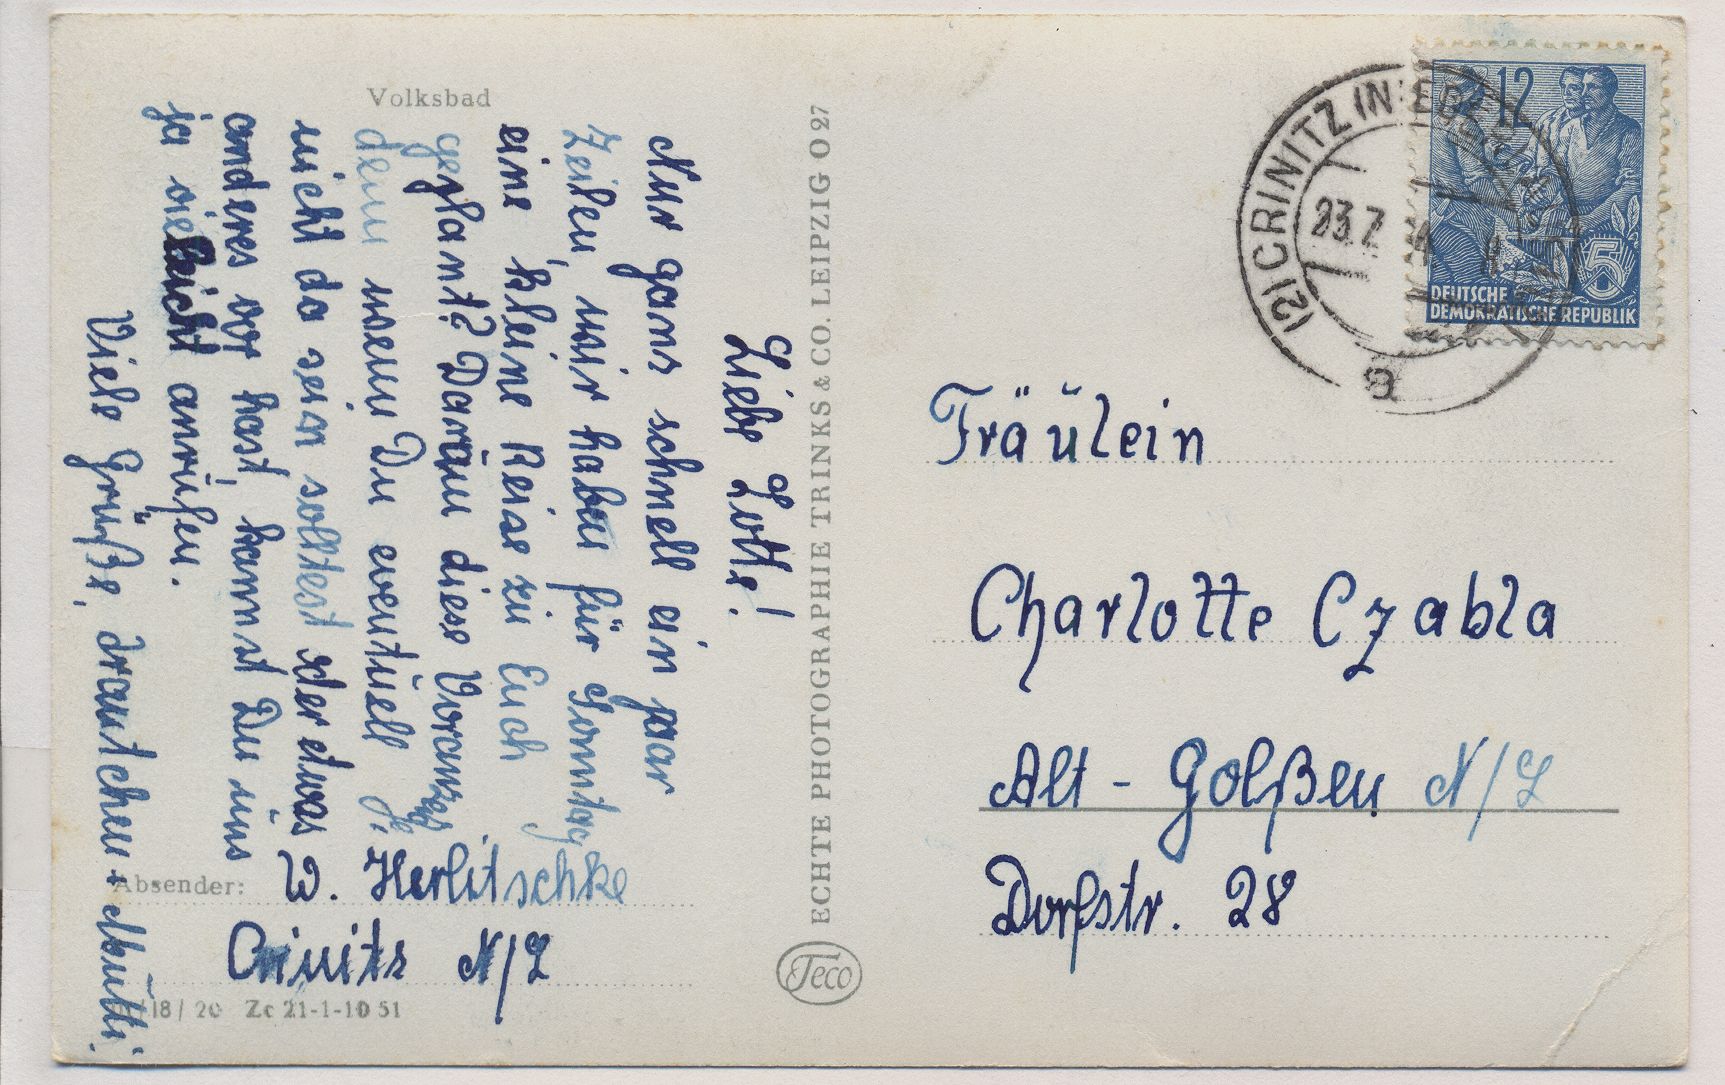 Volksbad
Liebe Lotte!
Nur ganz schnell ein paar
Zeilen, wir haben für Sonntag
eine kleine Reise zu Euch
geplant? Darum diese Voranzeige,
denn wenn Du eventuell
nicht da sein solltest oder etwas
anderes vor hast, kannst Du uns
ja vielleicht anrufen.
Viele Grüße, Trautchen + Mutti.
Absender: W. Herlitschke
Crinitz N/L
/18/ 20 Zc 21-1-10 51
ECHTE PHOTOGRAPHIE TRINKS & CO. LEIPZIG O 27
Teco
(2) CRINITZ
23.7
a
12
5
DEUTSCHE
DEMOKRATISCHE REPUBLIK
Fräulein
Charlotte Czabla
Alt - Golßen N/L
Dorfstr. 28